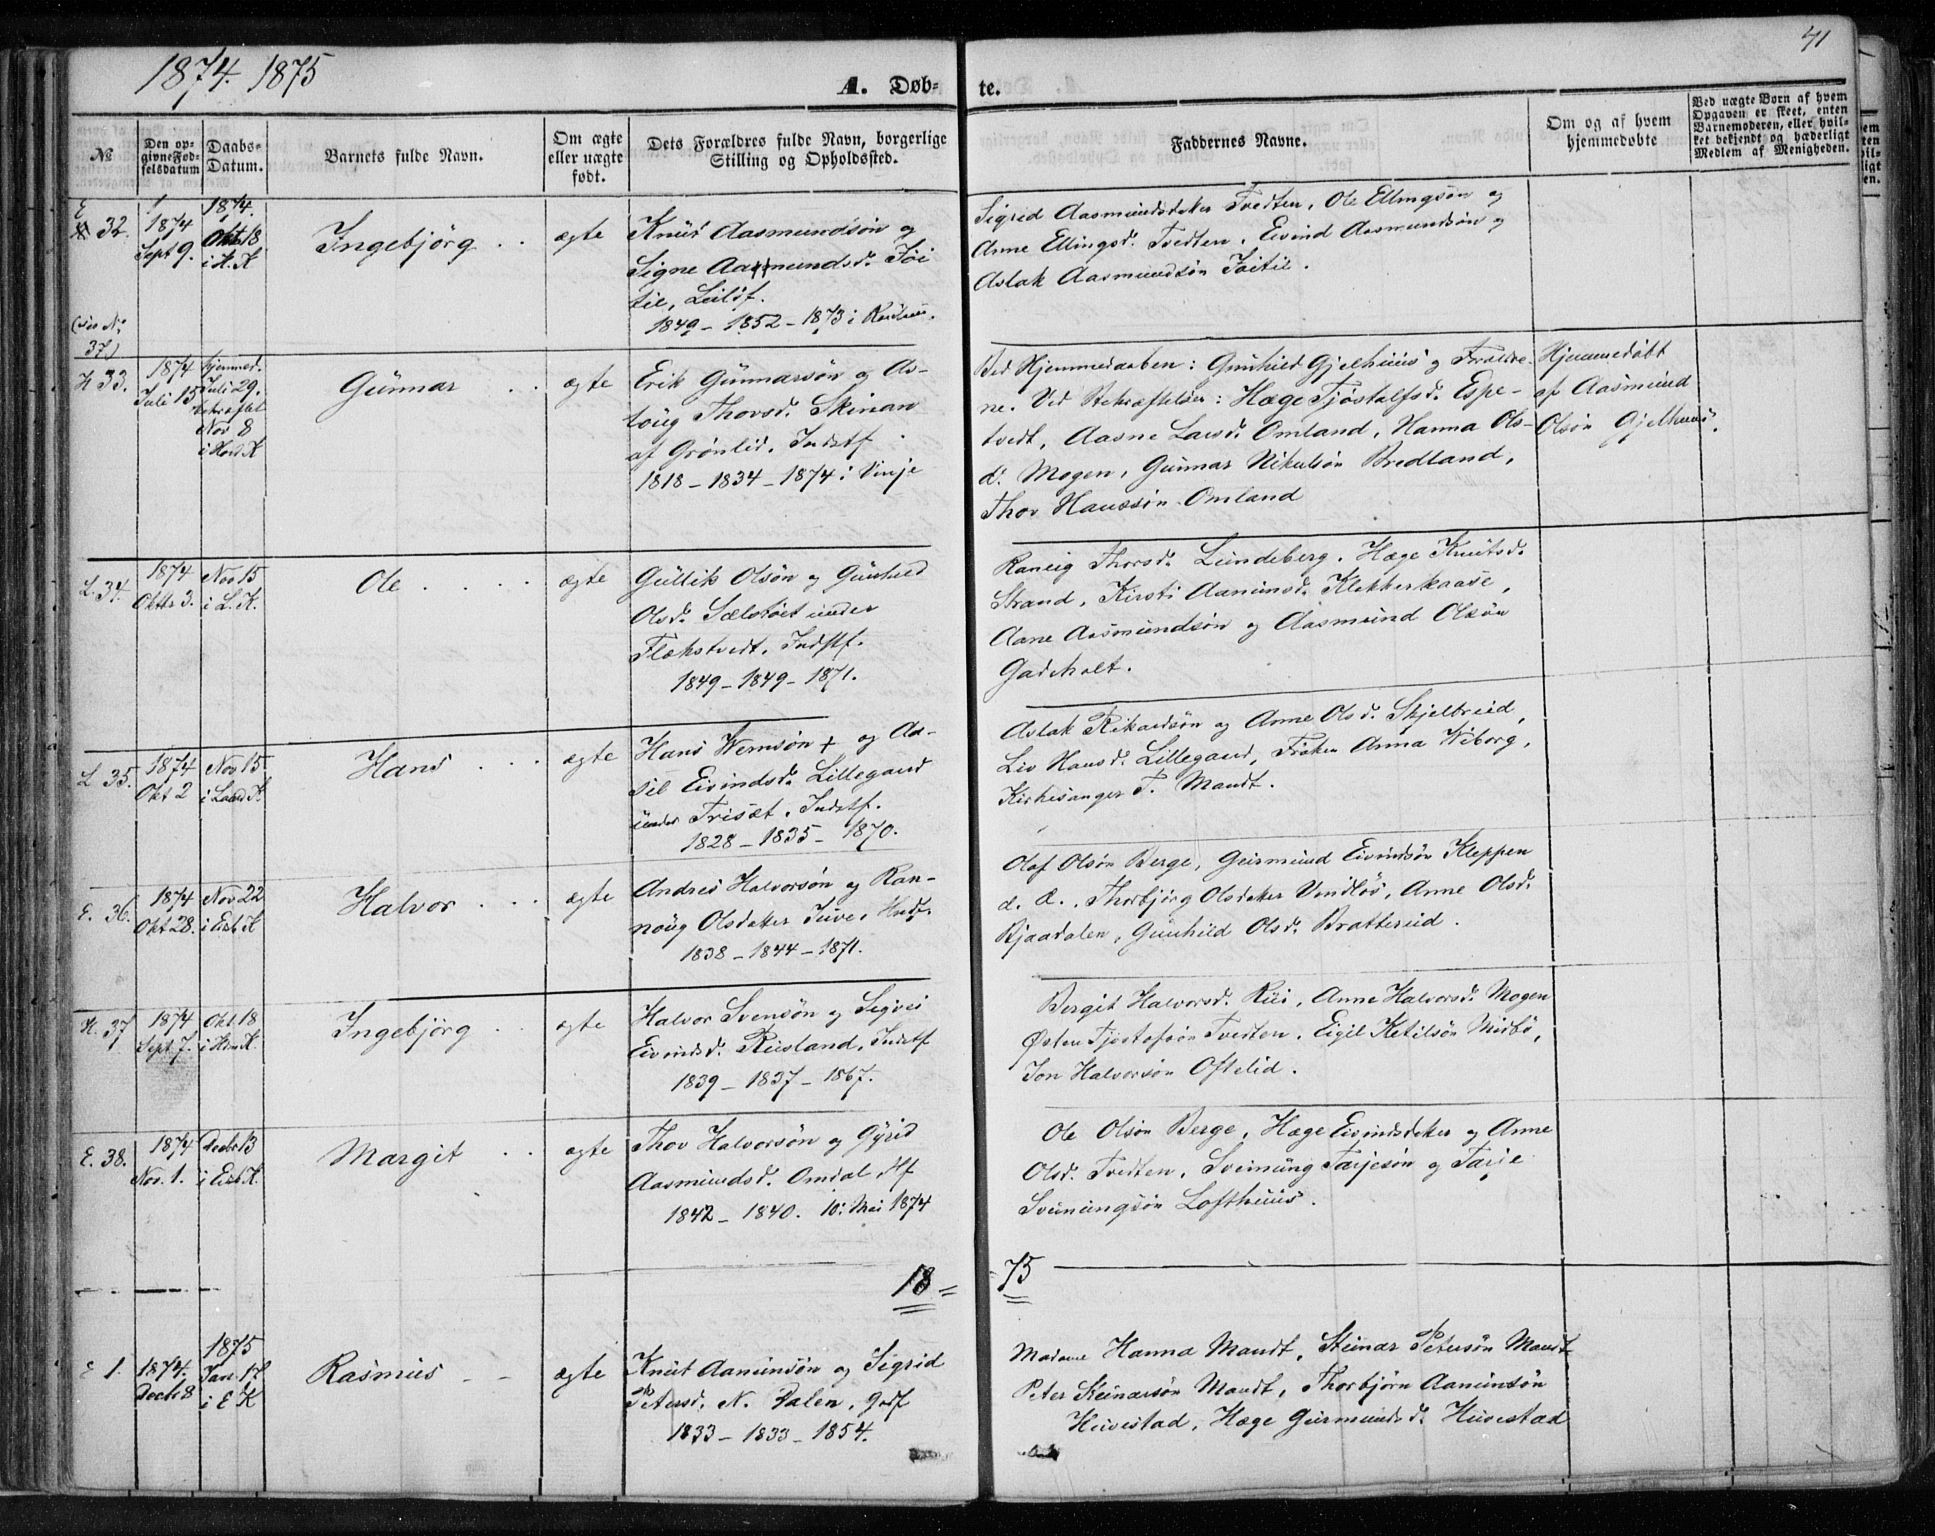 1874. 1875
A. Døb-
te.
41
№
Den op-
givne Fød-
selsdatum
Daabs-
Datum.
Barnets fulde Navn.
Om ægte
eller uægte
født.
Dets Forældres fulde Navn, borgerlige
Stilling og Opholdssted.
Faddernes Navne.
Om og af hvem
hjemmedøbte
Ved uægte Børn af hvem
Opgaven er skeet, enten
Barnemoderen, eller hvil-
ket bekjendt og hæderligt
Medlem af Menigheden.
E
32.
1874
Sept 9.
1874.
Okt 18
i H. K
Ingebjörg
ægte
Knut Aasmundsön og
Signe Aasmundsd.
til, Leilöf.
1849 - 1852 - 1873 i
Sigrid Aasmundsdater Tvedten, Ole Ellingsön og
Anne Ellingsd. Tvedten, Eivind Aasmundsön og
Aslak Aasmundsön
37)
H 33.
1874
Juli 15
hjemmed.
Juli 29.
bekræftet
Nov 8
Gunnar
ægte
Erik Gunnarsön og As-
loug Thorsd. Skinan
af Grönlid, Indstf.
1818 - 1834 - 1874 i Vinje
Ved Hjemmedaaben: Gunhild Gjelhuus og Forældre-
ne. Ved Bekræftelsen: Hæge Tjöstolfsd. Espe-
tvedt, Aasne Larsd. Omland, Hanna Ols-
d. Mogen, Gunnar Nikulsön Bredland,
Thor Hanssön Omland
Hjemmedöbt
af Aasmund
Olsön Gjelhuus.
L. 34.
1874
Oktbr 3.
Nov 15
i L. K.
Ole
ægte
Gullik Olsön og Gunhild
Olsd. under
Flekstvedt, Indstf.
1849 - 1849 - 1871.
Raneig Thorsd. Lundeberg, Hæge Knutsd.
Strand, Kirsti Aamunsd. Klekkerkaase,
Aane Aasmundsön og Aasmund Olsön
Gardeholt.
L 35.
1874
Okt 2
Nov 15
i Laard K
Hans
ægte
Hans Wernsön + og Aa-
sil Eivindsd. Lillegaard
under Triset, Indstf.
1828 - 1835 - 1870.
Aslak Rikardsön og Anne Olsd. Skjelbreid,
Liv Hansd. Lillegaard, Fröken Anna Wiborg,
Kirkesanger T. Mandt.
E. 36.
1874
Okt 28.
Nov 22
i Eidsb K
Halvor
ægte
Andres Halvorsön og Ran-
noug Olsdater Juve,
1838 - 1844 - 1871.
Olaf Olsön Berge, Geirmund Eivindsön Kleppen
d. Æ., Thorbjörg Olsdater Vindlös, Anne Olsd.
Bjaadalen, Gunhild Olsd. Brattereid.
H. 37
1874
Sept 7.
Okt 18
i Höu K.
Ingebjörg
ægte
Halvor Svensön og Sigvei
Eivindsd. Rusland, Indstf
1839 - 1837 - 1867.
Bergit Halvorsd. Rui, Anne Halvorsd. Mogen
Östen Tjostofsön Tvedten, Eigil Ketilsön Midbö,
Jon Halvorsön Oftelid.
E. 38.
1874
Nov. 1.
Decbr 13
i Eidsb K.
Margit
ægte
Thor Halvorsön og Gyrid
Aasmundsd. Omdal
1842 - 1840. 10: Mai 1874
Ole Olsön Berge, Hæge Eivindsdater og Anne
Olsd. Tvedten, Sveinung Tarjesön og Tarje
Sveinungsön Lofthuus.
18 =
- 75
E 1.
1874.
Decbr 8
1875
Jan 17
i E K
Rasmus
ægte
Knut Aamunsön og Sigrid
Petersd. N. Dalen, Grdf
1833 - 1833 - 1854.
Madame Hanna Mandt, Steinar Petersön Mandt
Peter Steinarsön Mandt, Thorbjörn Aamunsön
Huvestad, Hæge Geirmundsd. Huvestad